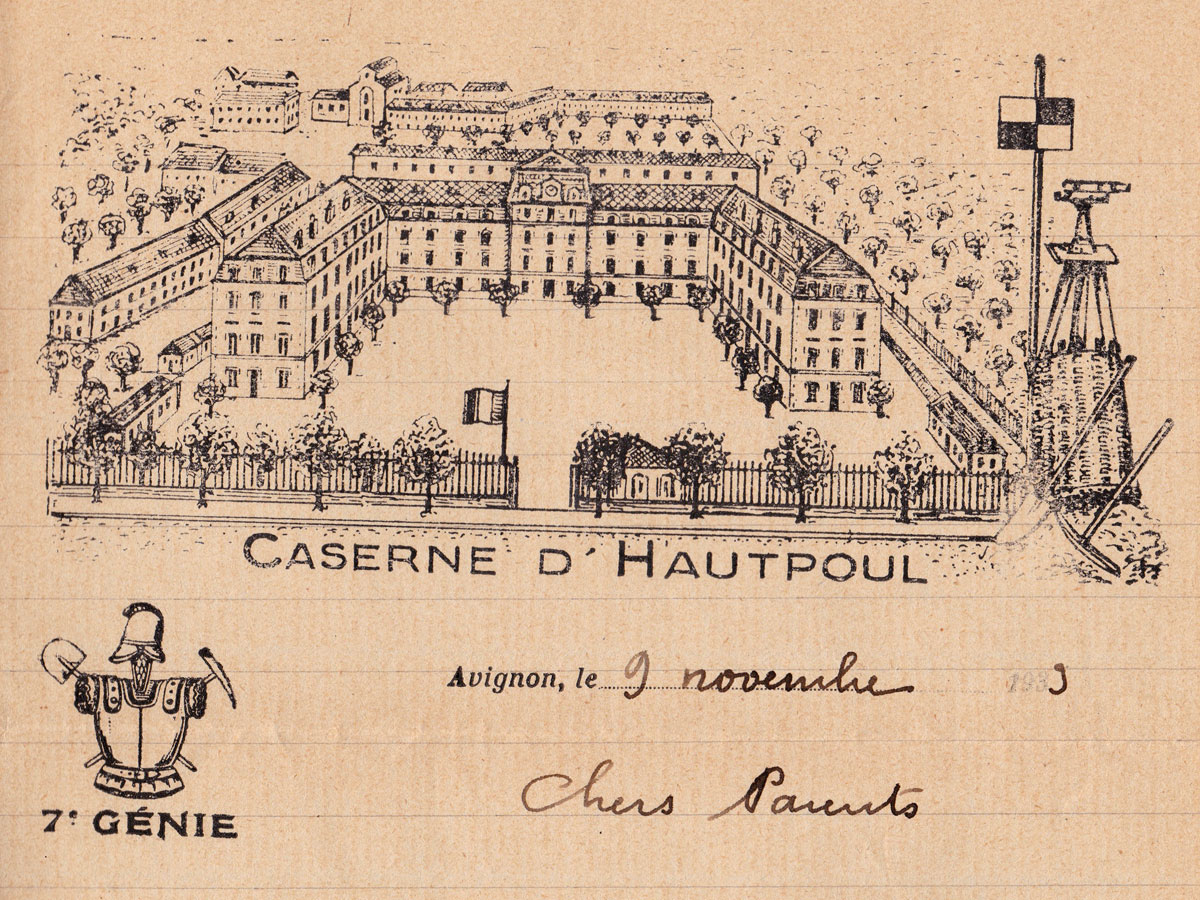 CASERNE D'HAUTPOUL
Avignon, le 9 novembre 1933
7e GÉNIE
Chers Parents